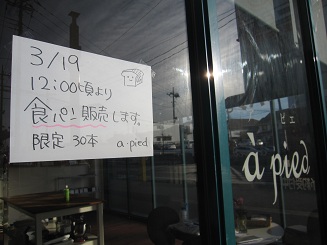 3/19
12:00頃より
食パン販売します。
限定30本 a・pied
ピエ
à pied